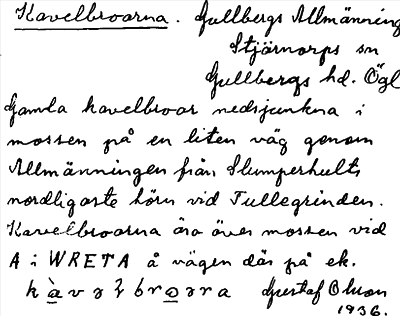 Kavelbroarna. Gullbergs Allmänning
Stjärnorps sn
Gullbergs hd. Ögl
Gamla kavelbroar nedsjunkna i
mossen på en liten väg genom
Allmänningen från Slumperhults
nordligaste hörn vid Tullegrinden.
Kavelbroarna äro över mossen vid
A i WRETA å vägen där på ek.
Gustaf Olsson
1936.